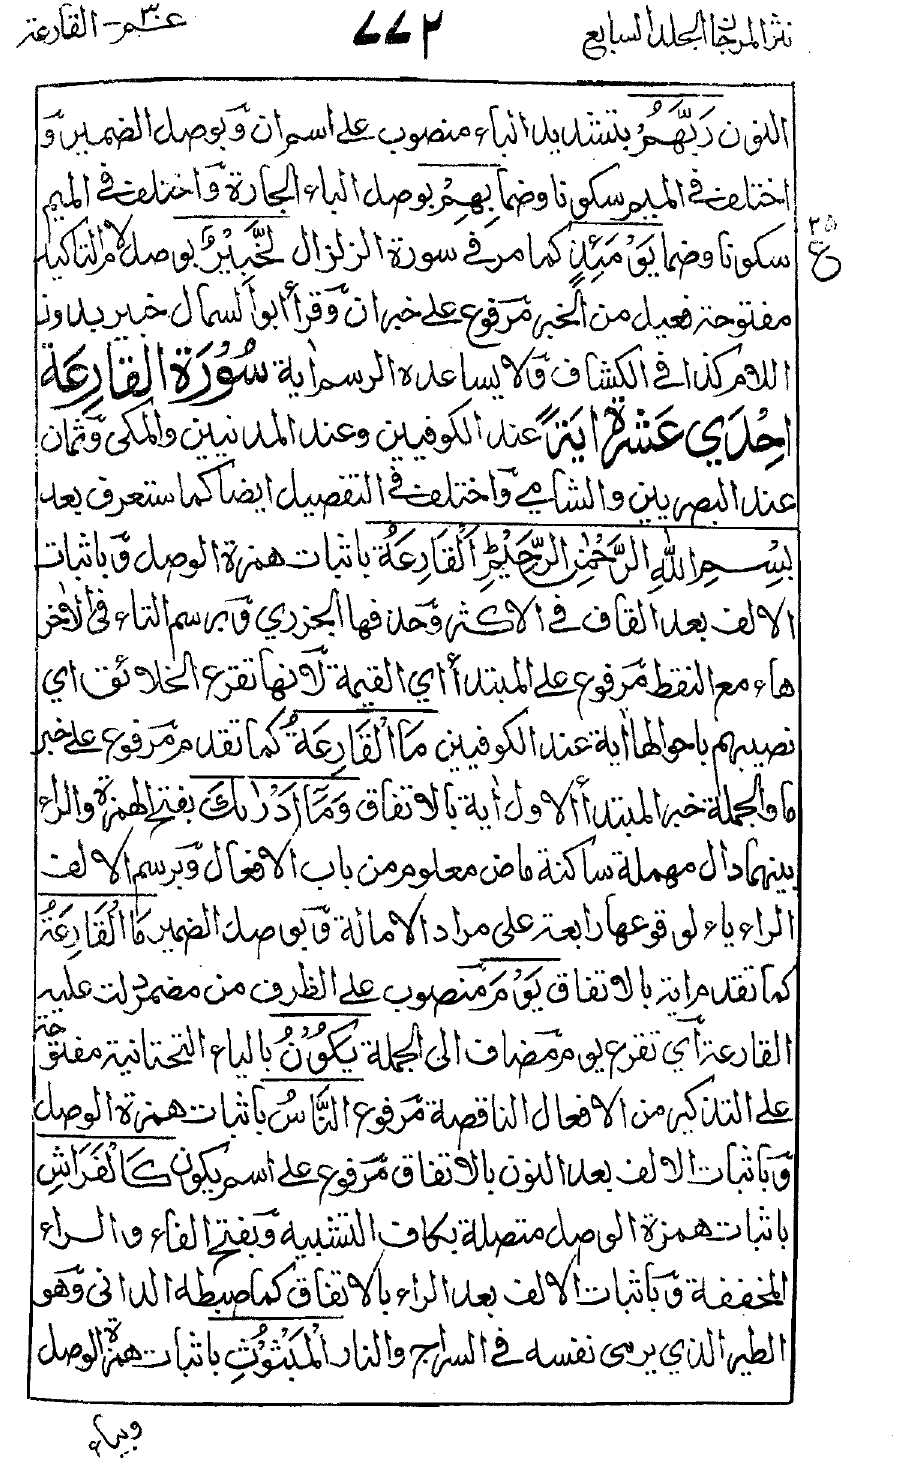 نثر المرجان الجلد السابع
٧٧٢
عم ٣٠ - القارعة
النون رَبَّهُمْ بتشديد الباء منصوب على اسم ان وبوصل الضمير و
اختلف فى الميم سكونا وضما بِهِمْ بوصل الباء الجارة واختلف فى الميم
سكونا وضما يَوْمَئِذٍ كما مر فى سورة الزلزال لَخَبِيْرٌ بوصل لام التاكيد
٢٥
ع
مفتوحة فعيل من الخبر مرفوع على خبر ان وقرأ ابو السمال خبير بدون
اللام كذا فى الكشاف ولا يساعده الرسم اية سُوْرَةُ القَارِعَة
اِحْدَي عَشْرَةَ ايَةً عند الكوفيين وعند المدنيين والمكى وثمان
عند البصريين والشامي واختلف فى التفصيل ايضا كما ستعرف بعد
بِسْمِ اللهِ الرَّحْمٰنِ الرَّحِيْمِ اَلْقَارِعَةُ باثبات همزة الوصل وباثبات
الالف بعد القاف فى الاكثر وحذفها الجزري وبرسم التاء فى الاٰخر
هاء مع النقط مرفوع على المبتدأ أي القيمة لانها تقرع الخلائق اي
تصيبهم باحوالها اٰية عند الكوفيين مَا الْقَارِعَةُ كما تقدم مرفوع على خبر
ما والجملة خبر المبتدأ الاول اٰية بالاتفاق وَمَآ اَدْرٰىكَ بفتح الهمزة والراء
بينهما دال مهملة ساكنة ماض معلوم من باب الافعال وبرسم الالف
الراء ياء لوقوعها رابعة على مراد الامالة وبوصل الضمير مَا الْقَارِعَةُ
كما تقدم اية بالاتفاق يَوْمَ منصوب على الظرف من مضمر دلت عليه
القارعة أي تقرع يوم مضاف الى الجملة يَكُوْنُ بالياء التحتانية مفتوحة
على التذكير من الافعال الناقصة مرفوع النَّاسُ باثبات همزة الوصل
وباثبات الالف بعد النون بالاتفاق مرفوع على اسم يكون كَالْفَرَاشِ
باثبات همزة الوصل متصلة بكاف التشبيه وبفتح الفاء والراء
المخففة وباثبات الالف بعد الراء بالاتفاق كما ضبطه الدانى وهو
الطير الذي يرمى نفسه فى السراج والنار الْمَبْثُوْثِ باثبات همزة الوصل
وبباء